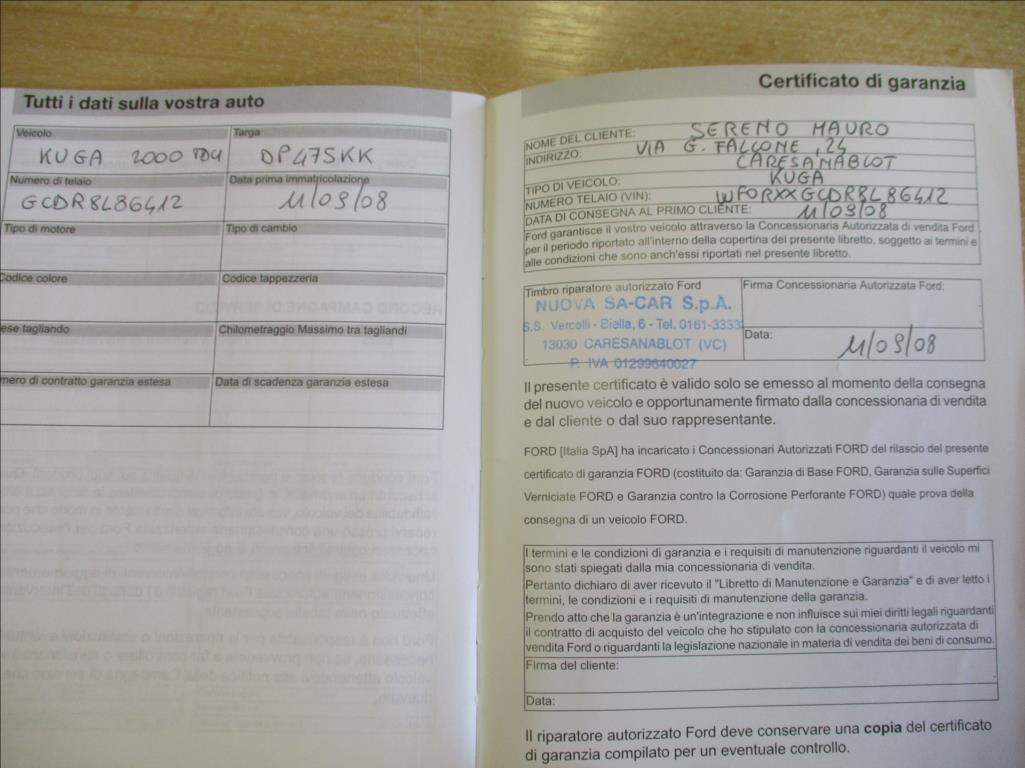 Tutti i dati sulla vostra auto
Veicolo
Targa
KUGA 2000 TDCI
DP475KK
Numero di telaio
Data prima immatricolazione
GCDR8L86412
11/09/08
Tipo di motore
Tipo di cambio
Codice colore
Codice tappezzeria
ese tagliando
Chilometraggio Massimo tra tagliandi
mero di contratto garanzia estesa
Data di scadenza garanzia estesa
Certificato di garanzia
NOME DEL CLIENTE: SERENO MAURO
INDIRIZZO: VIA G. FALCONE, 24
CARESANABLOT
TIPO DI VEICOLO: KUGA
NUMERO TELAIO (VIN): WF0RXXGCDR8L86412
DATA DI CONSEGNA AL PRIMO CLIENTE: 11/09/08
Ford garantisce il vostro veicolo attraverso la Concessionaria Autorizzata di vendita Ford
per il periodo riportato all'interno della copertina del presente libretto, soggetto ai termini e
alle condizioni che sono anch'essi riportati nel presente libretto.
Timbro riparatore autorizzato Ford
NUOVA SA-CAR S.p.A.
S.S. Vercelli - Biella, 6 - Tel. 0161-3333
13030 CARESANABLOT (VC)
P. IVA 01299640027
Firma Concessionaria Autorizzata Ford:
Data: 11/09/08
Il presente certificato è valido solo se emesso al momento della consegna
del nuovo veicolo e opportunamente firmato dalla concessionaria di vendita
e dal cliente o dal suo rappresentante.
FORD [Italia SpA] ha incaricato i Concessionari Autorizzati FORD del rilascio del presente
certificato di garanzia FORD (costituito da: Garanzia di Base FORD, Garanzia sulle Superfici
Verniciate FORD e Garanzia contro la Corrosione Perforante FORD) quale prova della
consegna di un veicolo FORD.
I termini e le condizioni di garanzia e i requisiti di manutenzione riguardanti il veicolo mi
sono stati spiegati dalla mia concessionaria di vendita.
Pertanto dichiaro di aver ricevuto il "Libretto di Manutenzione e Garanzia" e di aver letto i
termini, le condizioni e i requisiti di manutenzione della garanzia.
Prendo atto che la garanzia è un'integrazione e non influisce sui miei diritti legali riguardanti
il contratto di acquisto del veicolo che ho stipulato con la concessionaria autorizzata di
vendita Ford o riguardanti la legislazione nazionale in materia di vendita dei beni di consumo.
Firma del cliente:
Data:
Il riparatore autorizzato Ford deve conservare una copia del certificato
di garanzia compilato per un eventuale controllo.